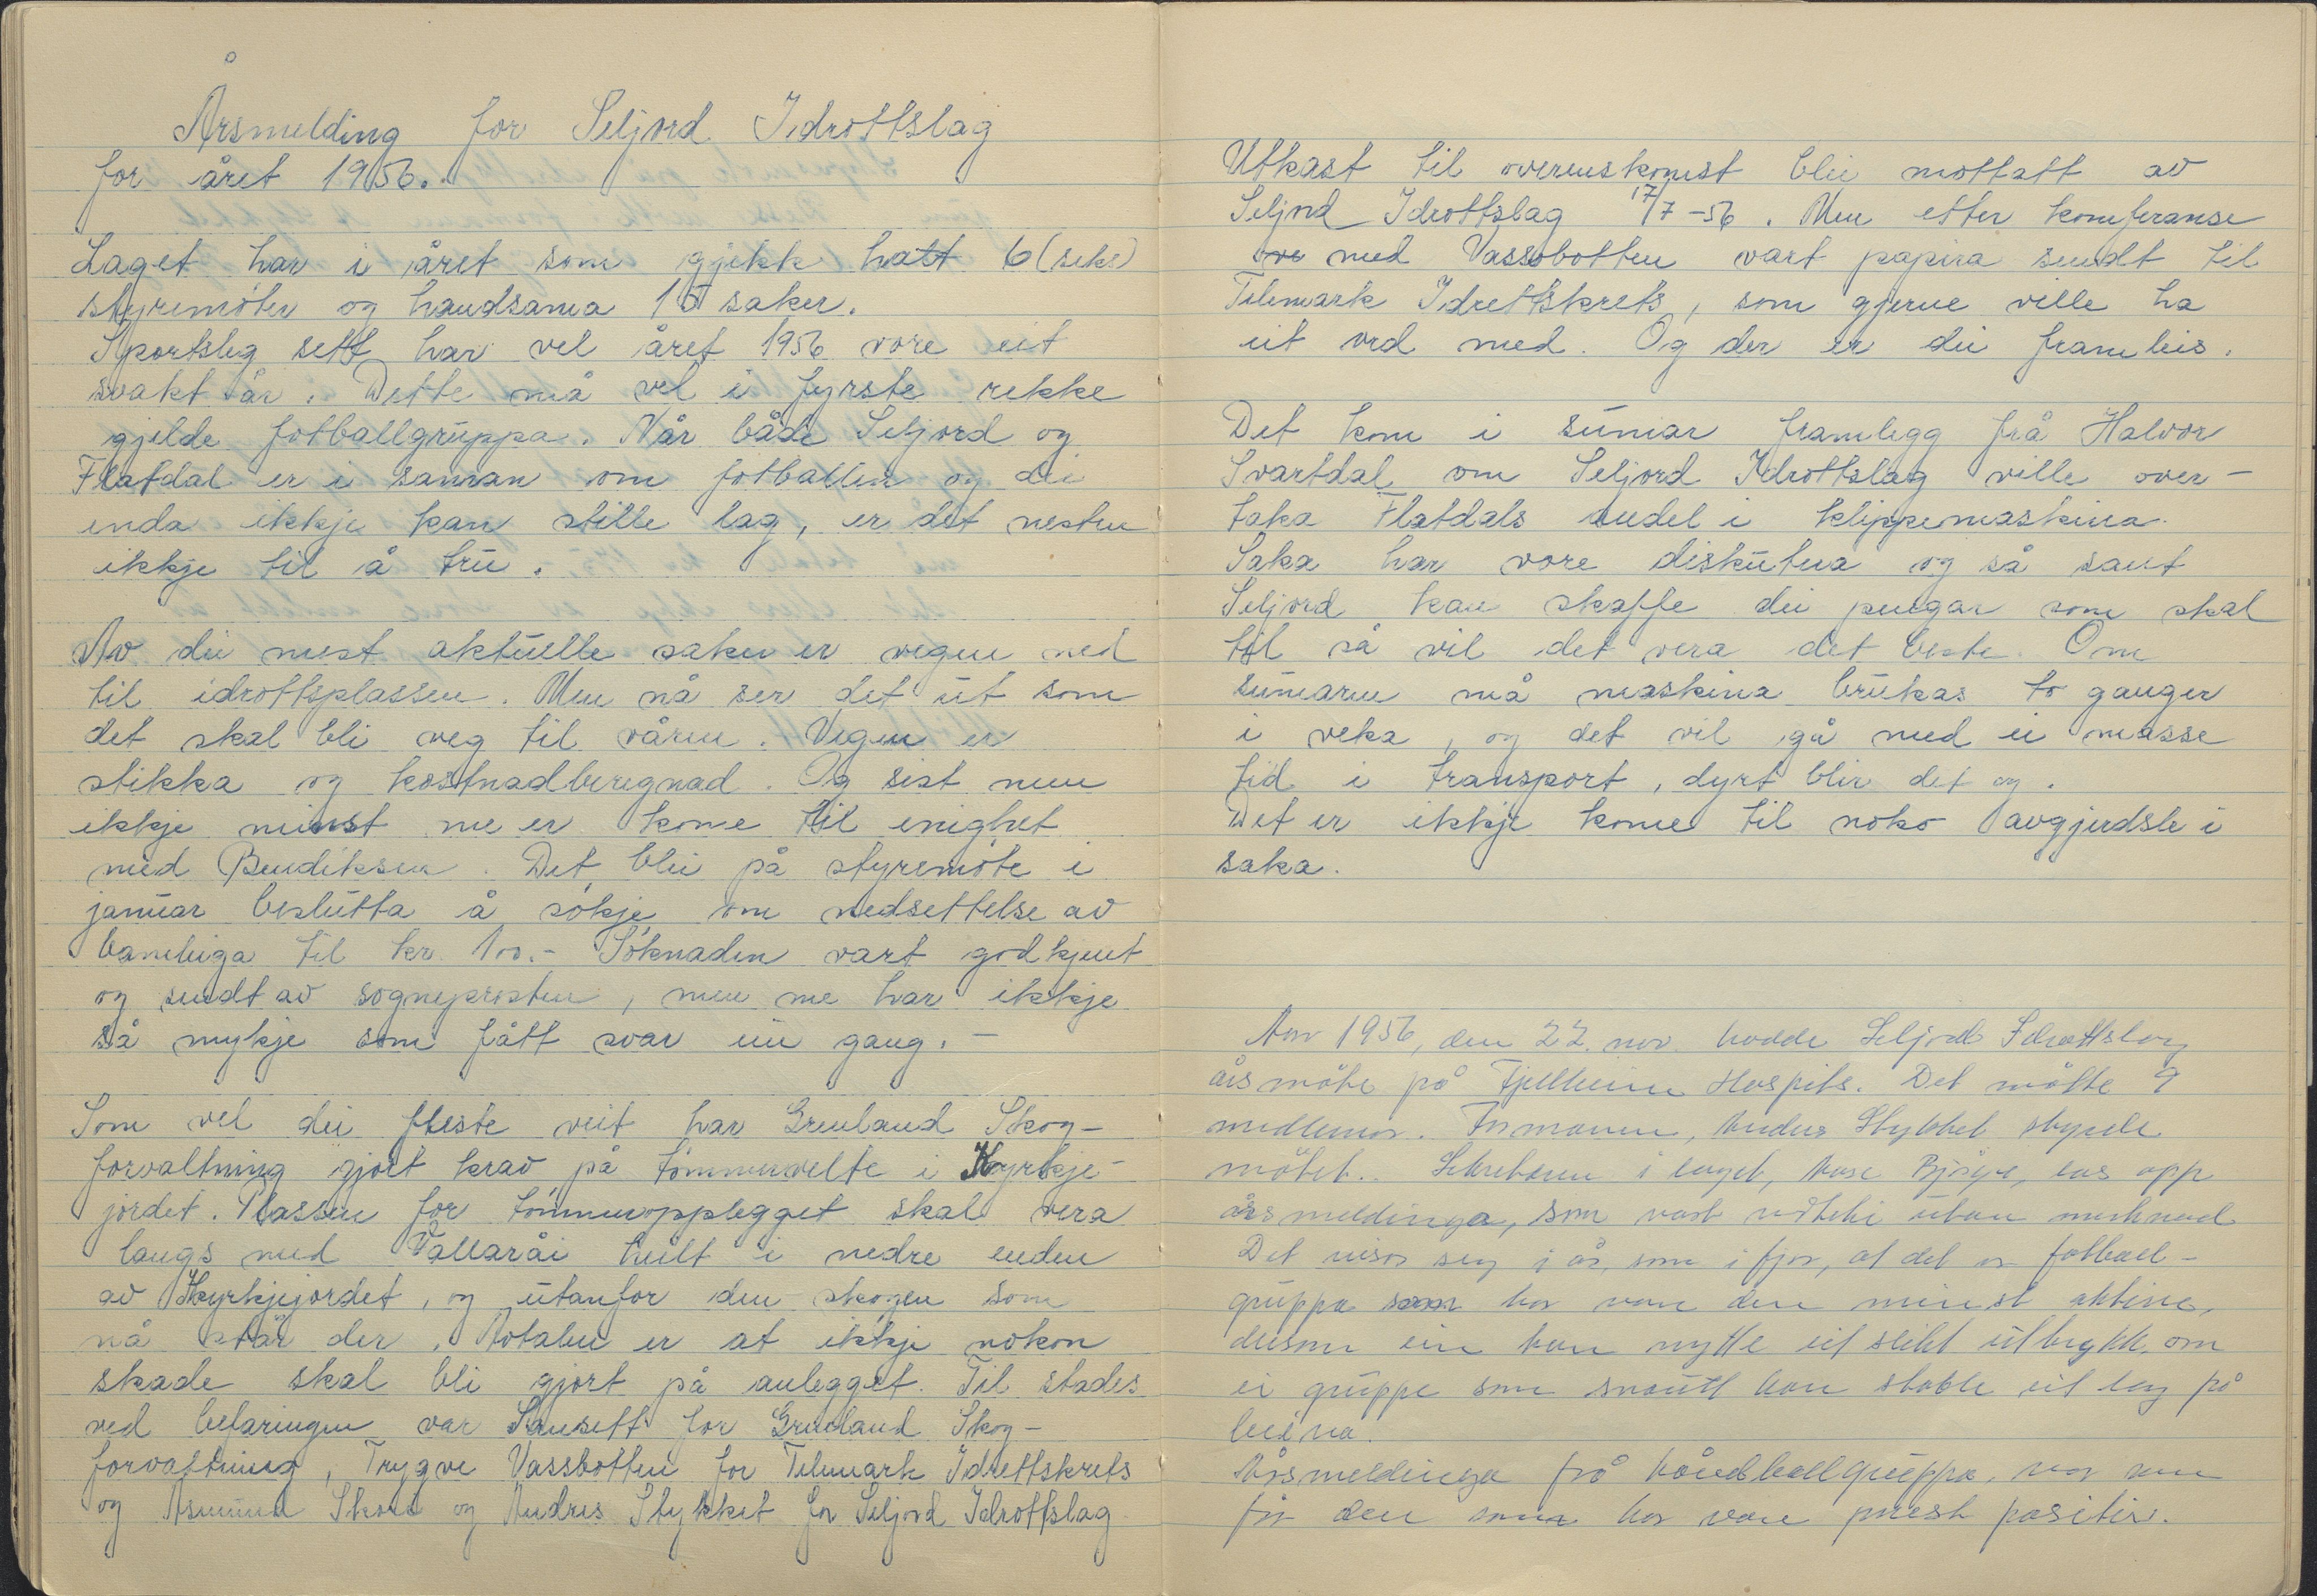 Årsmelding for Seljord Idrottslag
for året 1956.
Laget har i året som gjekk hatt 6 (seks)
styremöter og handsama 15 saker.
Sportsleg sett har vel året 1956 vore eit
svakt år. Dette må vel i fyrste rekke
gjelde fotballgruppa. Når både Seljord og
Flatdal er i saman om fotballen og dei
enda ikkje kan stille lag, er det nesten
ikkje til å tru.
Av dei mest aktuelle saker er vegen ned
til idrottsplassen. Men nå ser det ut som
det skal bli veg til våren. Vegen er
stikka og kostnadberegnad. Og sist men
ikkje minst me er kome til enighet
med Bendiksen. Det blei på styremöte i
januar beslutta å sökje om nedsettelse av
baneleiga til kr. 100.- Söknaden vart godkjent
og sendt av sogneprosten, men me har ikkje
så mykje som fått svar ein gang. -
Som vel dei fleste veit har Grenland Skog-
forvaltning gjort krav på tömmervelte i Kyrkje-
jordet. Plassen for tömmeropplegget skal vera
langs med Vallaråi heilt i nedre enden
av Kyrkjejordet, og utanfor den skogen som
nå står der. Avtalen er at ikkje nokon
skade skal bli gjort på anlegget. Til stades
ved befaringen var Sansett for Grenland Skog-
forvaltning, Trygve Vassbotten for Telemark Idrettskrets
og Asmund Skori og Andres Stykket for Seljord Idrottslag
Utkast til overenskomst blei mottatt av
Seljord Idrottslag 17/7-56. Men etter konferanse
med Vassbotten vart papira sendt til
Telemark Idrettskrets, som gjerne ville ha
eit ord med. Og der er dei framleis.
Det kom i sumar framlegg frå Halvor
Svartdal om Seljord Idrottslag ville over-
taka Flatdals andel i klippemaskina.
Saka har vore diskutera og så sant
Seljord kan skaffe dei pengar som skal
til så vil det vera det beste. Om
sumaren må maskina brukas to ganger
i veka, og det vil gå med ei masse
tid i transport, dyrt blir det og.
Det er ikkje kome til noko avgjerdsle i
saka.
1956, den 22. nov. hadde Seljord Idrottslag
årsmöte på Fjellheim Hospits. Det mötte 9
medlemer. Formannen, Andres Stykket styrde
mötet. Sekretæren i laget, Aase Bjåge, las opp
årsmeldinga, som vart vedteki utan merknad
Det viser seg i år, som i fjor, at det er fotball-
gruppa som har vore den minst aktive,
dersom ein kan nytte eit slikt uttrykk om
ei gruppe som snautt kan stable eit lag på
beina.
Årsmeldinga frå håndballgruppa, var
den som har vore mest positiv.